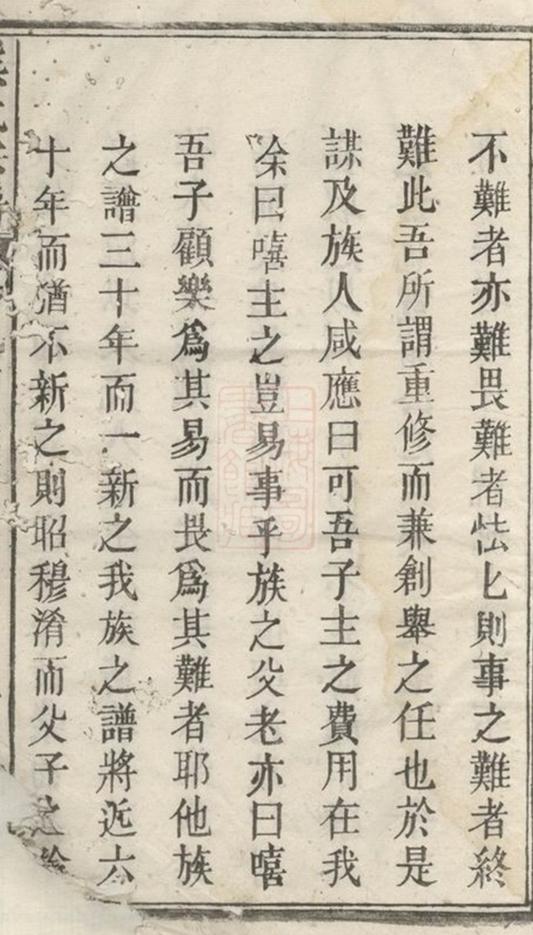 不難者亦難畏難者怯已則事之難者終
難此吾所謂重修而兼創舉之任也於是
謀及族人咸應曰可吾子主之費用在我
余曰嘻主之豈易事乎族之父老亦曰嘻
吾子顧樂爲其易而畏爲其難者耶他族
之譜三十年而一新之我族之譜將近六
十年而猶不新之則昭穆淆而父子之